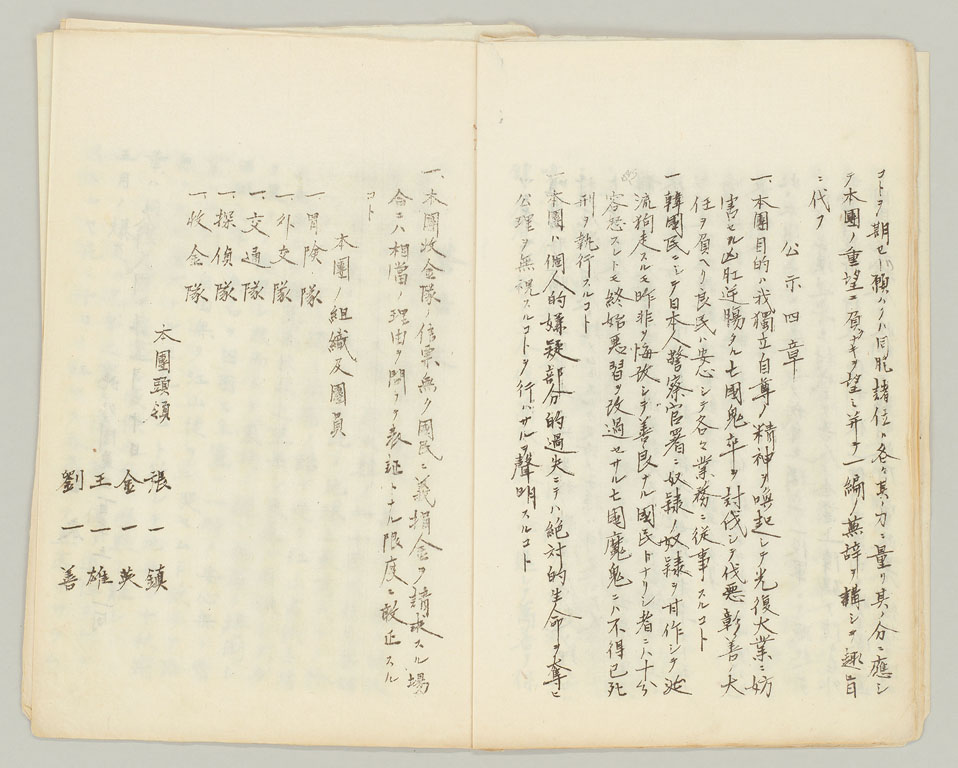 コトヲ期セン願ハクハ同胞諸位ハ各々其ノ力ニ量リ其ノ分ニ應シ
テ本團ノ重望ニ負カサヲ望ミ并テ一編ノ蕪辞ヲ構シテ趣旨
ニ代フ
公示四章
一、本團目的ハ我獨立自尊ノ精神ヲ喚起シテ光復大業ニ妨
害セル凶肛逆腸タル亡國鬼卒ヲ討伐シテ伐悪彰善ノ大
任ヲ負ヘリ良民ハ安心シテ各々業務ニ従事スルコト
一韓國民ニシテ日本人警察官署ニ奴隷ノ奴隷ヲ甘作シテ
流狗走スルモ昨非ヲ悔改シテ善良ナル國民トナリシ者ニハ十分
容恕スレトモ終始悪習ヲ改過セサル亡國魔鬼ニハ不得已死
刑ヲ執行スルコト
一本團ハ個人的嫌疑部分的過失ニテハ絶対的生命ヲ奪ヒ
公理ヲ無視スルコトヲ行ハサルヲ聲明スルコト
一、本團收金隊ノ信票無ク國民ニ義捐金ヲ請求スル場
合ニハ相當ノ理由ヲ聞フク表証トナル限度ニ敢正スル
コト
本團ノ組織及團員
一冐険隊
一外交隊
一、交通隊
一、探偵隊
一、收金隊
本團頭領
張一鎮
金一英
王一雄
劉一善